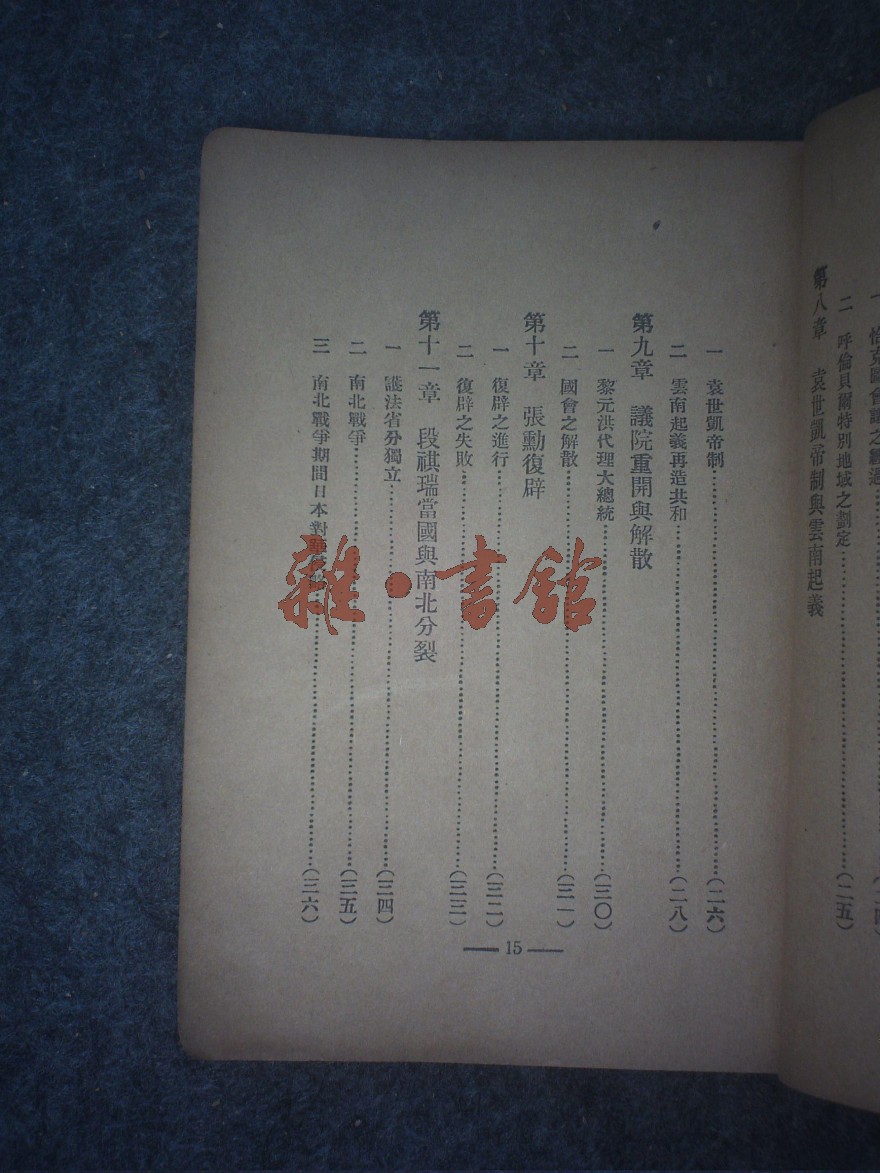 二　呼倫貝爾特別地域之劃定……(二五)
第八章　袁世凱帝制與雲南起義
一　袁世凱帝制……(二六)
二　雲南起義再造共和……(二八)
第九章　議院重開與解散
一　黎元洪代理大總統……(三〇)
二　國會之解散……(三一)
第十章　張勳復辟
一　復辟之進行……(三二)
二　復辟之失敗……(三三)
第十一章　段祺瑞當國與南北分裂
一　護法省分獨立……(三四)
二　南北戰爭……(三五)
三　南北戰爭期間日本對……(三六)
15
雜·書館